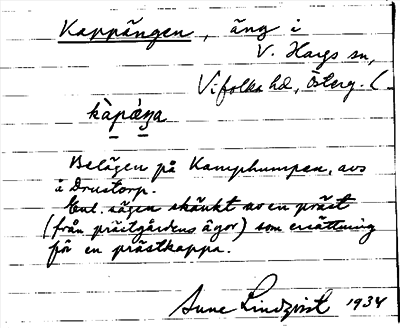 Kappängen, äng i
V. Hargs sn,
Vifolka hd, Österg. (
kàpæŋa
Belägen på Kamphumpen, avs
å Drustorp.
Enl. sägen skänkt av en präst
(från prästgårdens ägor) som ersättning
för en prästkappa.
Sune Lindqvist 1934